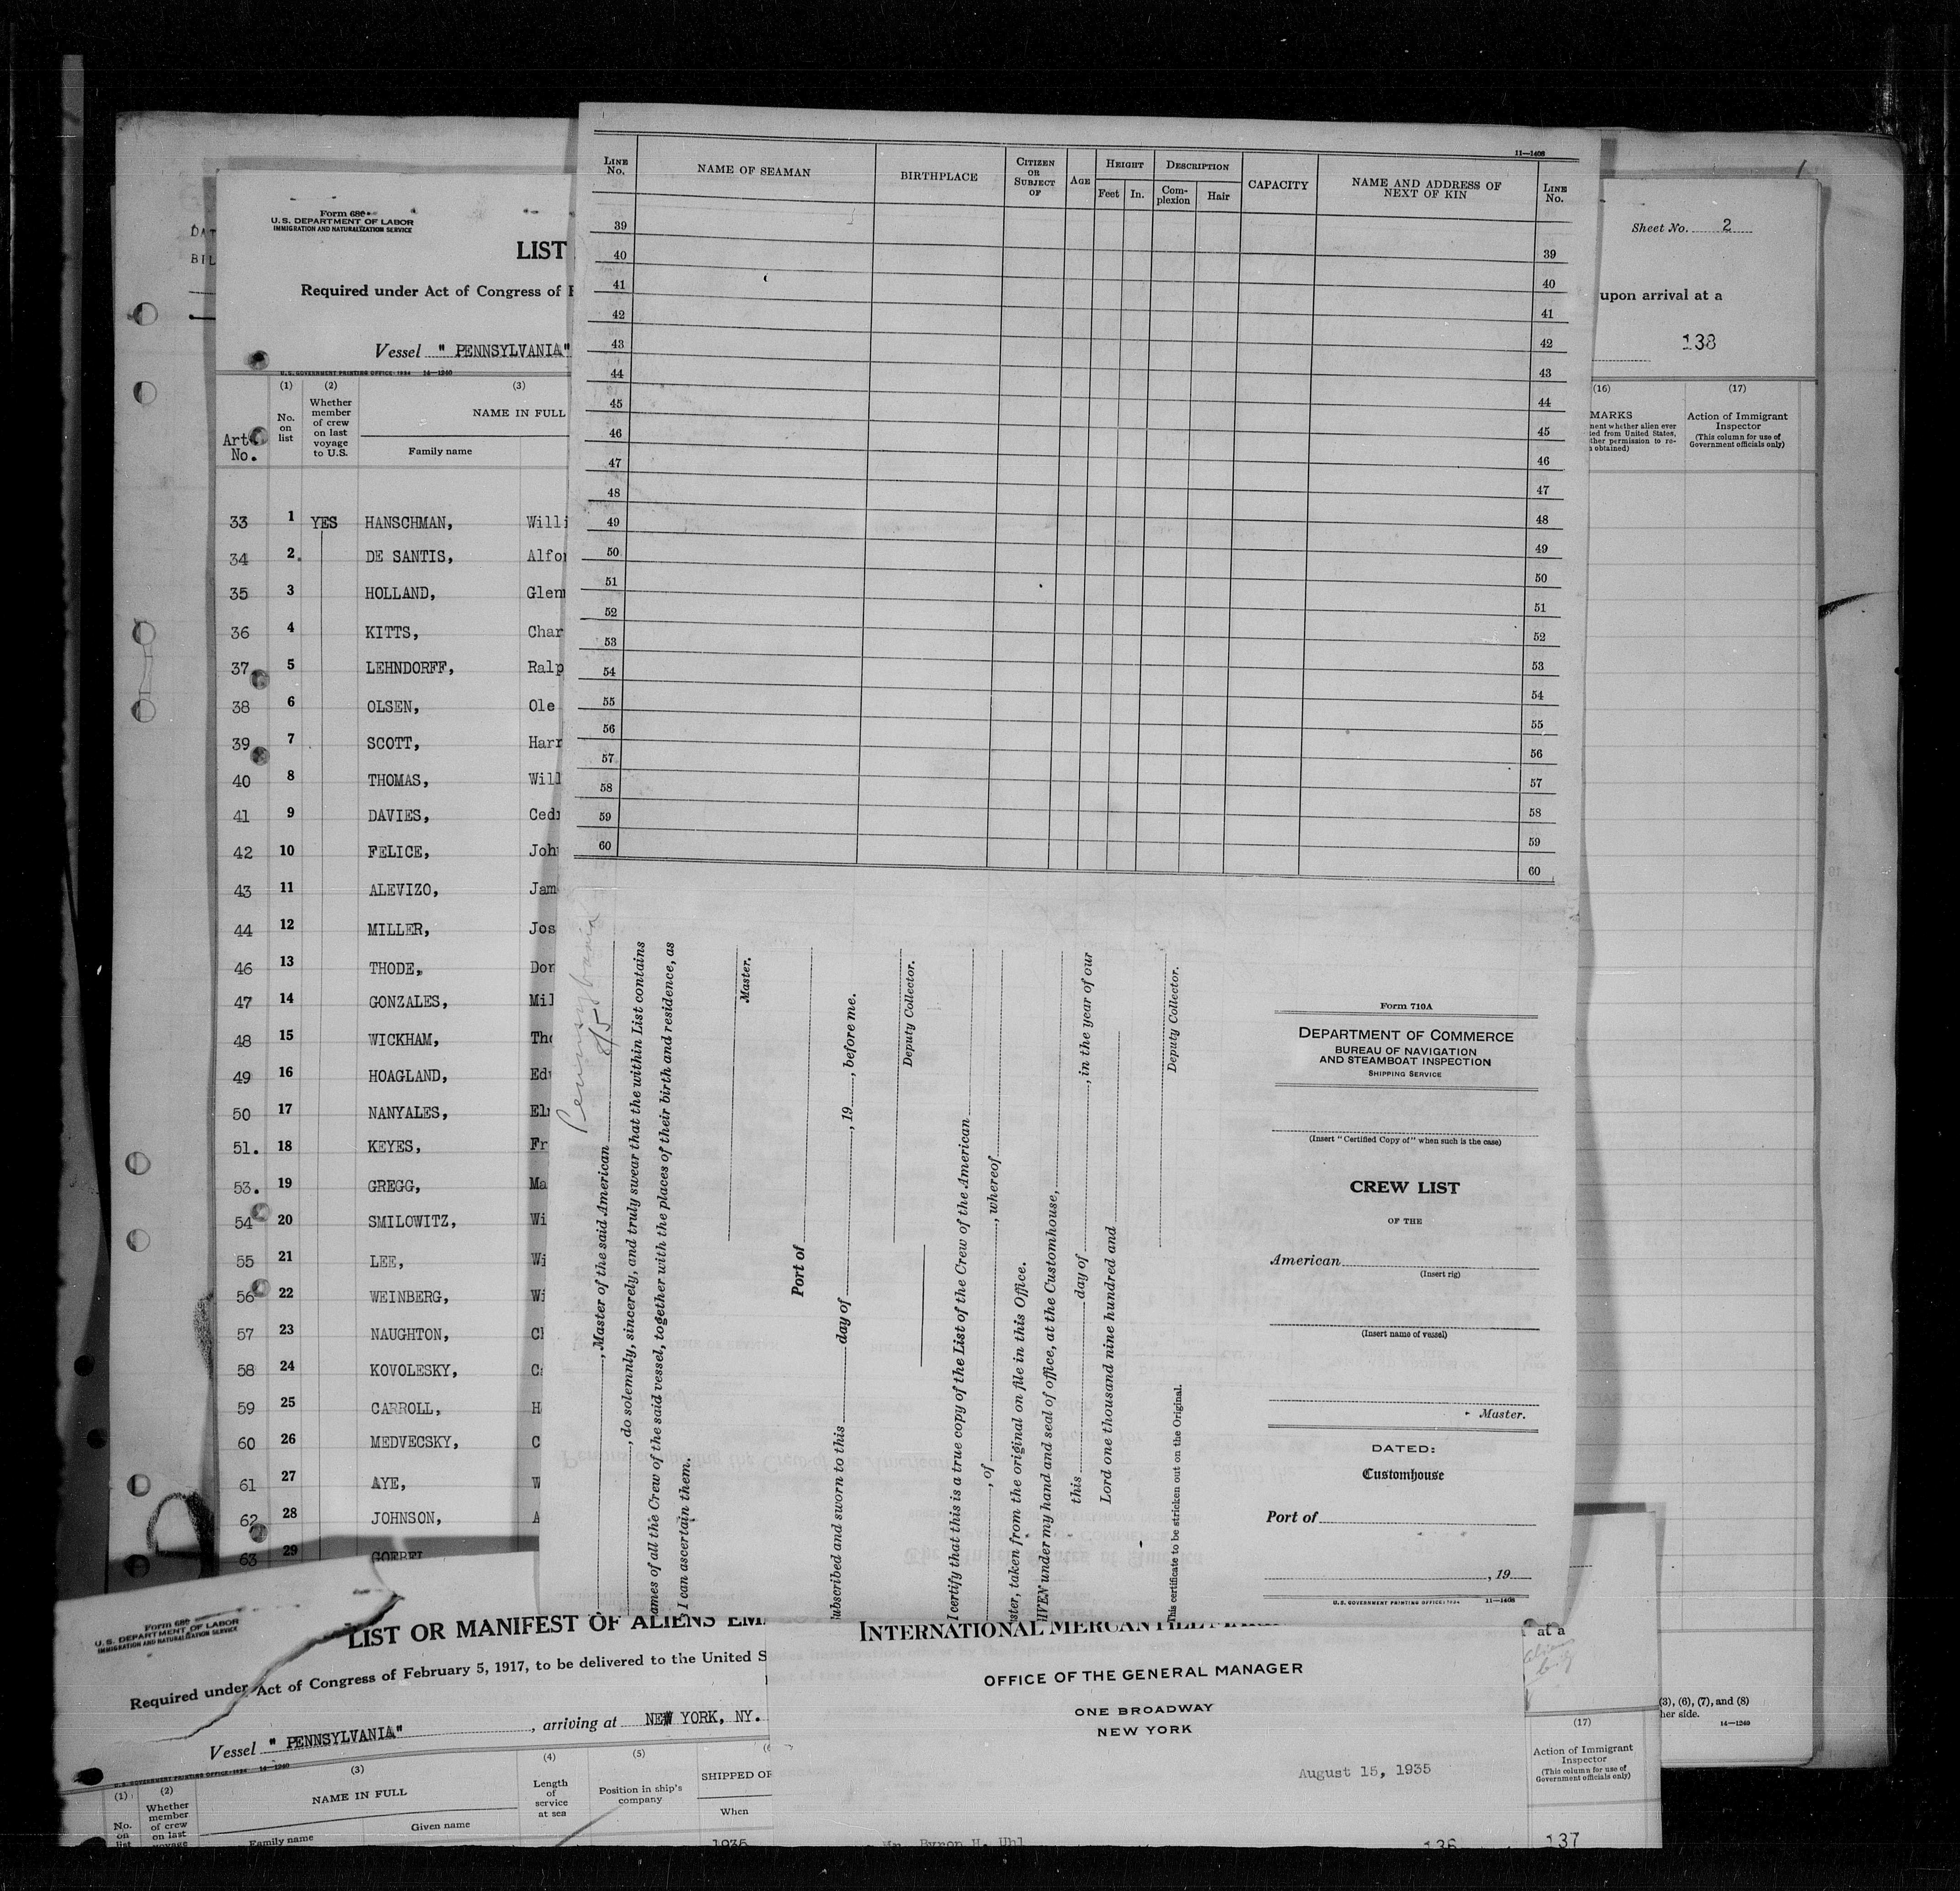 DAT
BIL
Form 680
U.S. DEPARTMENT OF LABOR
IMMIGRATION AND NATURALIZATION SERVICE
LIST
Required under Act of Congress of F
Vessel " PENNSYLVANIA"
U. S. GOVERNMENT PRINTING OFFICE: 1934 14—1240
(1) (2) (3)
Art. No.
No. on list
Whether member of crew on last voyage to U.S.
NAME IN FULL
Family name
33 1 YES HANSCHMAN, Willi
34 2. DE SANTIS, Alfon
35 3 HOLLAND, Glenn
36 4 KITTS, Char
37 5 LEHNDORFF, Ralp
38 6 OLSEN, Ole
39 7 SCOTT, Harr
40 8 THOMAS, Will
41 9 DAVIES, Cedr
42 10 FELICE, Joh
43 11 ALEVIZO, Jam
44 12 MILLER, Jos
46 13 THODE, Don
47 14 GONZALES, Mil
48 15 WICKHAM, Tho
49 16 HOAGLAND, Edw
50 17 NANYALES, El
51. 18 KEYES, Fr
53. 19 GREGG, Ma
54 20 SMILOWITZ, Wi
55 21 LEE, Wi
56 22 WEINBERG, Wi
57 23 NAUGHTON, Cl
58 24 KOVOLESKY, C
59 25 CARROLL, H
60 26 MEDVECSKY, C
61 27 AYE, W
62 28 JOHNSON, A
63 29 GOEBEL
11—1408
LINE No.
NAME OF SEAMAN
BIRTHPLACE
CITIZEN OR SUBJECT OF
AGE
HEIGHT
Feet In.
DESCRIPTION
Com-plexion Hair
CAPACITY
NAME AND ADDRESS OF NEXT OF KIN
LINE No.
39 39
40 40
41 41
42 42
43 43
44 44
45 45
46 46
47 47
48 48
49 49
50 50
51 51
52 52
53 53
54 54
55 55
56 56
57 57
58 58
59 59
60 60
Pennsylvania
8/5
, Master of the said American
, do solemnly, sincerely, and truly swear that the within List contains
ames of all the Crew of the said vessel, together with the places of their birth and residence, as
I can ascertain them.
Master.
Port of
ubscribed and sworn to this day of , 19 , before me.
Deputy Collector.
I certify that this is a true copy of the List of the Crew of the American
, of , whereof
ster, taken from the original on file in this Office.
IVEN under my hand and seal of office, at the Customhouse,
this day of , in the year of our
Lord one thousand nine hundred and
Deputy Collector.
This certificate to be stricken out on the Original.
Form 710A
DEPARTMENT OF COMMERCE
BUREAU OF NAVIGATION
AND STEAMBOAT INSPECTION
SHIPPING SERVICE
(Insert "Certified Copy of" when such is the case)
CREW LIST
OF THE
American
(Insert rig)
(Insert name of vessel)
Master.
DATED:
Customhouse
Port of
, 19
U. S. GOVERNMENT PRINTING OFFICE: 1934 11—1408
Sheet No. 2
upon arrival at a
138
(16) (17)
MARKS
ment whether alien ever
ted from United States,
ther permission to re-
n obtained)
Action of Immigrant Inspector
(This column for use of Government officials only)
(3), (6), (7), and (8)
her side.
14—1240
Form 680
U.S. DEPARTMENT OF LABOR
IMMIGRATION AND NATURALIZATION SERVICE
LIST OR MANIFEST OF ALIENS EM
Required under Act of Congress of February 5, 1917, to be delivered to the United S
Vessel " PENNSYLVANIA" , arriving at NEW YORK, NY.
U. S. GOVERNMENT PRINTING OFFICE: 1934 14—1240
(1) (2) (3) (4) (5) (6
No. on list
Whether member of crew on last voyage
NAME IN FULL
Family name Given name
Length of service at sea
Position in ship's company
SHIPPED OR
When
1935
INTERNATIONAL MERCANTILE MAR
OFFICE OF THE GENERAL MANAGER
ONE BROADWAY
NEW YORK
August 15, 1935
Mr. Byron H. Uhl
136
at a
(17)
Action of Immigrant Inspector
(This column for use of Government officials only)
137